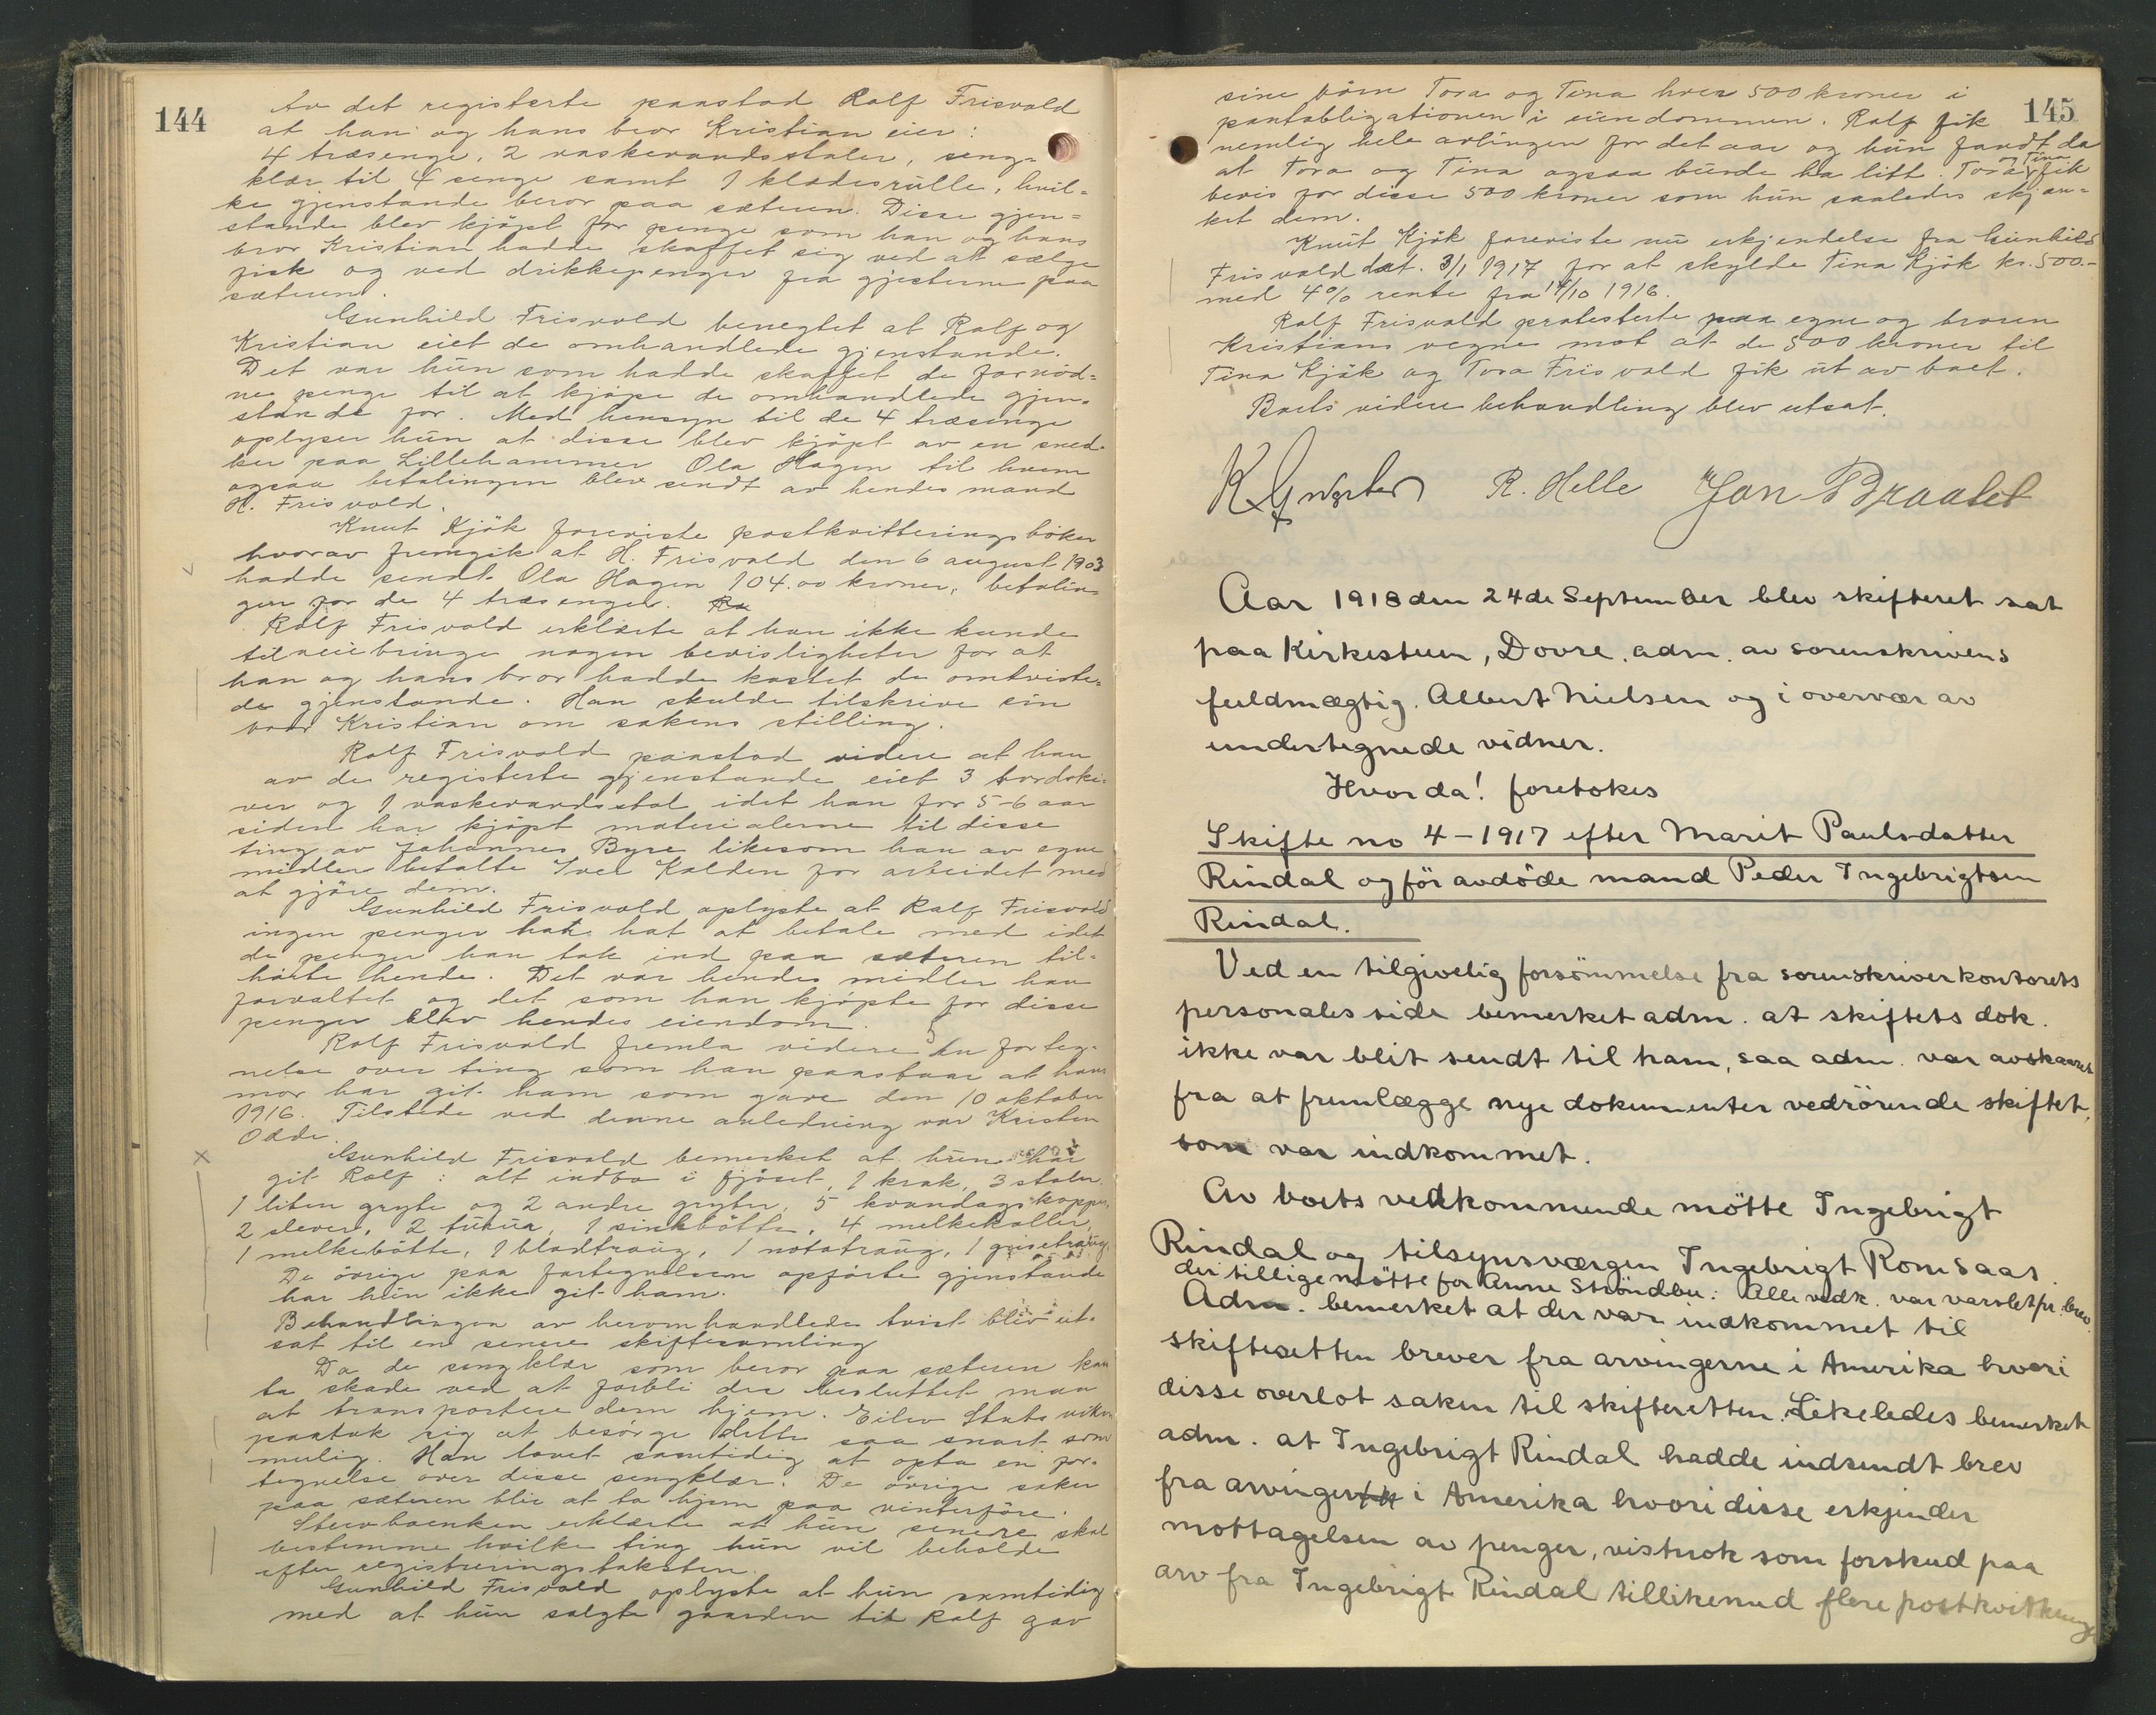 144
Av det registerte paastod Rolf Frisvold
at han og hans bror Kristian eier:
4 træsenge, 2 vaskevandsstoler, seng-
klær til 4 senge samt 1 klædesrulle, hvil-
ke gjenstande beror paa sæteren. Disse gjen-
stande blev kjöpt for penge som han og hans
bror Kristian hadde skaffet sig ved at sælge
fisk og ved drikkepenger fra gjesterne paa
sæteren.
Gunhild Frisvold benegtet at Rolf og
Kristian eiet de omhandlede gjenstande.
Det var hun som hadde skaffet de fornöd-
ne penge til at kjöpe de omhandlede gjen-
stande for. Med hensyn til de 4 træsenge
oplyser hun at disse blev kjöpt av en sned-
ker paa Lillehammer Ola Hagen til hvem
ogsaa betalingen blev sendt av hendes mand
H. Frisvold.
Knut Kjök foreviste postkvitteringsböker
hvorav fremgik at H. Frisvold den 6 august 1903
hadde sendt Ola Hagen 104.00 kroner, betalin-
gen for de 4 træsenger. Ro
Rolf Frisvold erklærte at han ikke kunde
tilveiebringe nogen bevisligheter for at
han og hans bror hadde kostet de omtviste-
de gjenstande. Han skulde tilskrive sin
bror Kristian om sakens stilling.
Rolf Frisvold paastod videre at han
av de registerte gjenstande eiet 3 bordski-
ver og 1 vaskevandsstol idet han for 5-6 aar
siden har kjöpt materialerne til disse
ting av Johannes Byre likesom han av egne
midler betalte Iver Kolden for arbeidet med
at gjöre dem.
Gunhild Frisvold oplyste at Rolf Frisvold
ingen penger hate hat at betale med idet
de penger han tok ind paa sæteren til-
hörte hende. Det var hendes midler han
forvaltet og det som han kjöpte for disse
penger blev hendes eiendom.
Rolf Frisvold fremla videre en forteg-
nelse over ting som han paastaar at hans
mor har git ham som gave den 10 oktober
1916. Tilstede ved denne anledning var Kristen
Odde.
Gunhild Frisvold bemerket at hun har
git Rolf: alt indbo i fjöset, 1 krak, 3 stoler
1 liten gryte og 2 andre gryter, 5 hvandagskopper,
2 slever, 2 1 sinkbötte, 4 melkekoller,
1 melkebötte, 1 blodtraug, 1 notatraug, 1 grisetraug
De övrige paa fortegnelsen opförte gjenstande
har hun ikke git ham.
Behandlingen av heromhandlede tvist blev ut-
sat til en senere skiftesamling
Da de sengklær som beror paa sæteren kan
ta skade ved at forbli der besluttet man
at transportere dem hjem. Eilev Stutsviken
paatok sig at besörge dette saa snart som
mulig. Han lovet samtidig at opta en for-
tegnelse over disse sengklær. De övrige saker
paa sæteren blir at ta hjem paa vinterföre.
Stervboenken erklærte at hun senere skal
bestemme hvilke ting hun vil beholde
efter registreringstaksten.
Gunhild Frisvold oplyste at hun samtidig
med at hun solgte gaarden til Rolf gav
145
sine börn Tora og Tina hver 500 kroner i
pantobligationen i eiendommen. Rolf fik
nemlig hele avlingen for det aar og hun fandt da
at Tora og Tina ogsaa burde ha litt. Tora og Tina fik
bevis for disse 500 kroner som hun saaledes skjæn-
ket dem.
Knut Kjök foreviste nu erkjendelse fra Gunhild
Frisvold dat. 3/1 1917 for at skylde Tina Kjök kr. 500.-
med 4% rente fra 14/10 1916.
Rolf Frisvold protesterte paa egne og broren
Kristians vegne mot at de 500 kroner til
Tina Kjök og Tora Frisvold fik ut av boet.
Boets videre behandling blev utsat.
R. Helle Jon Braatet
Aar 1918 den 24de September blev skifteret sat
paa Kirkestuen, Dovre. adm. av sorenskrivens
fuldmægtig. Albert Nielsen og i overvær av
undertegnede vidner.
Hvorda! foretokes
Skifte no 4-1917 efter Marit Paulsdatter
Rindal og för avdöde mand Peder Ingebrigtsen
Rindal.
Ved en tilgivelig forsömmelse fra sorenskriverkontorets
personales side bemerket adm. at skiftets dok.
ikke var blit sendt til ham, saa adm. var avskaaret
fra at fremlægge nye dokumenter vedrörende skiftet,
som var indkommet.
Av boets vedkommende mötte Ingebrigt
Rindal og tilsynsværgen Ingebrigt Romsaas.
der tillige mötte for Anne Ströndbu: Alle vedk. var varslet pr. brev.
Adm. bemerket at der var indkommet til
skifteretten brever fra arvingerne i Amerika hvori
disse overlot saken til skifteretten. Likeledes bemerket
adm. at Ingebrigt Rindal hadde indsendt brev
fra arvinger i Amerika hvori disse erkjender
mottagelsen av penger, vistnok som forskud paa
arv fra Ingebrigt Rindal tillikemed flere postkvittering